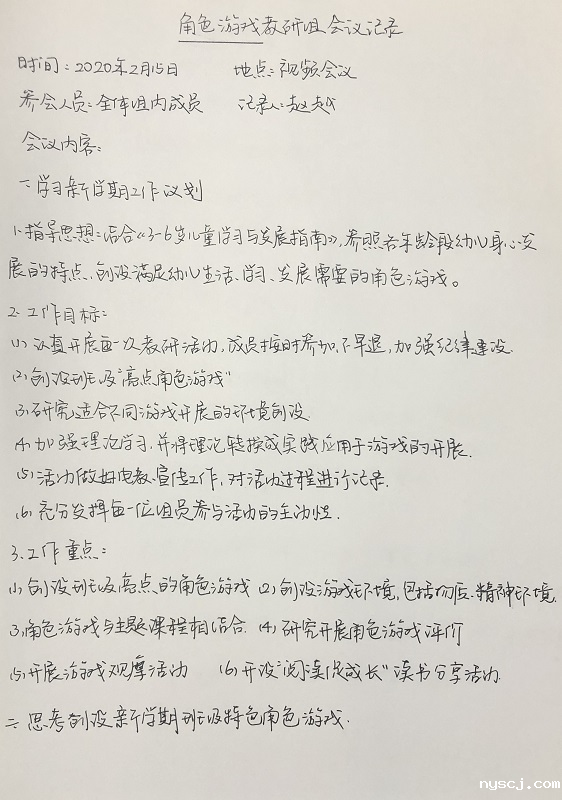 角色游戏教研组会议记录
时间：2020年2月15日 地点：视频会议
参会人员：全体组内成员 记录人：赵越
会议内容：
一、学习新学期工作计划
1、指导思想：结合《3-6岁儿童学习与发展指南》，参照各年龄段幼儿身心发
展的特点，创设满足幼儿生活、学习、发展需要的角色游戏。
2、工作目标：
(1)认真开展每一次教研活动，成员按时参加，不早退，加强纪律建设.
(2)创设班级“亮点角色游戏”
(3)研究适合不同游戏开展的环境创设.
(4)加强理论学习，并将理论转换成实践应用于游戏的开展.
(5)活动做好电教、宣传工作，对活动过程进行记录.
(6)充分发挥每一位组员参与活动的主动性.
3、工作重点：
(1)创设班级亮点的角色游戏 (2)创设游戏环境，包括物质、精神环境.
(3)角色游戏与主题课程相结合. (4)研究开展角色游戏评价
(5)开展游戏观摩活动 (6)开设“阅读促成长”读书分享活动
二、思考创设新学期班级特色角色游戏.
nyscj.com